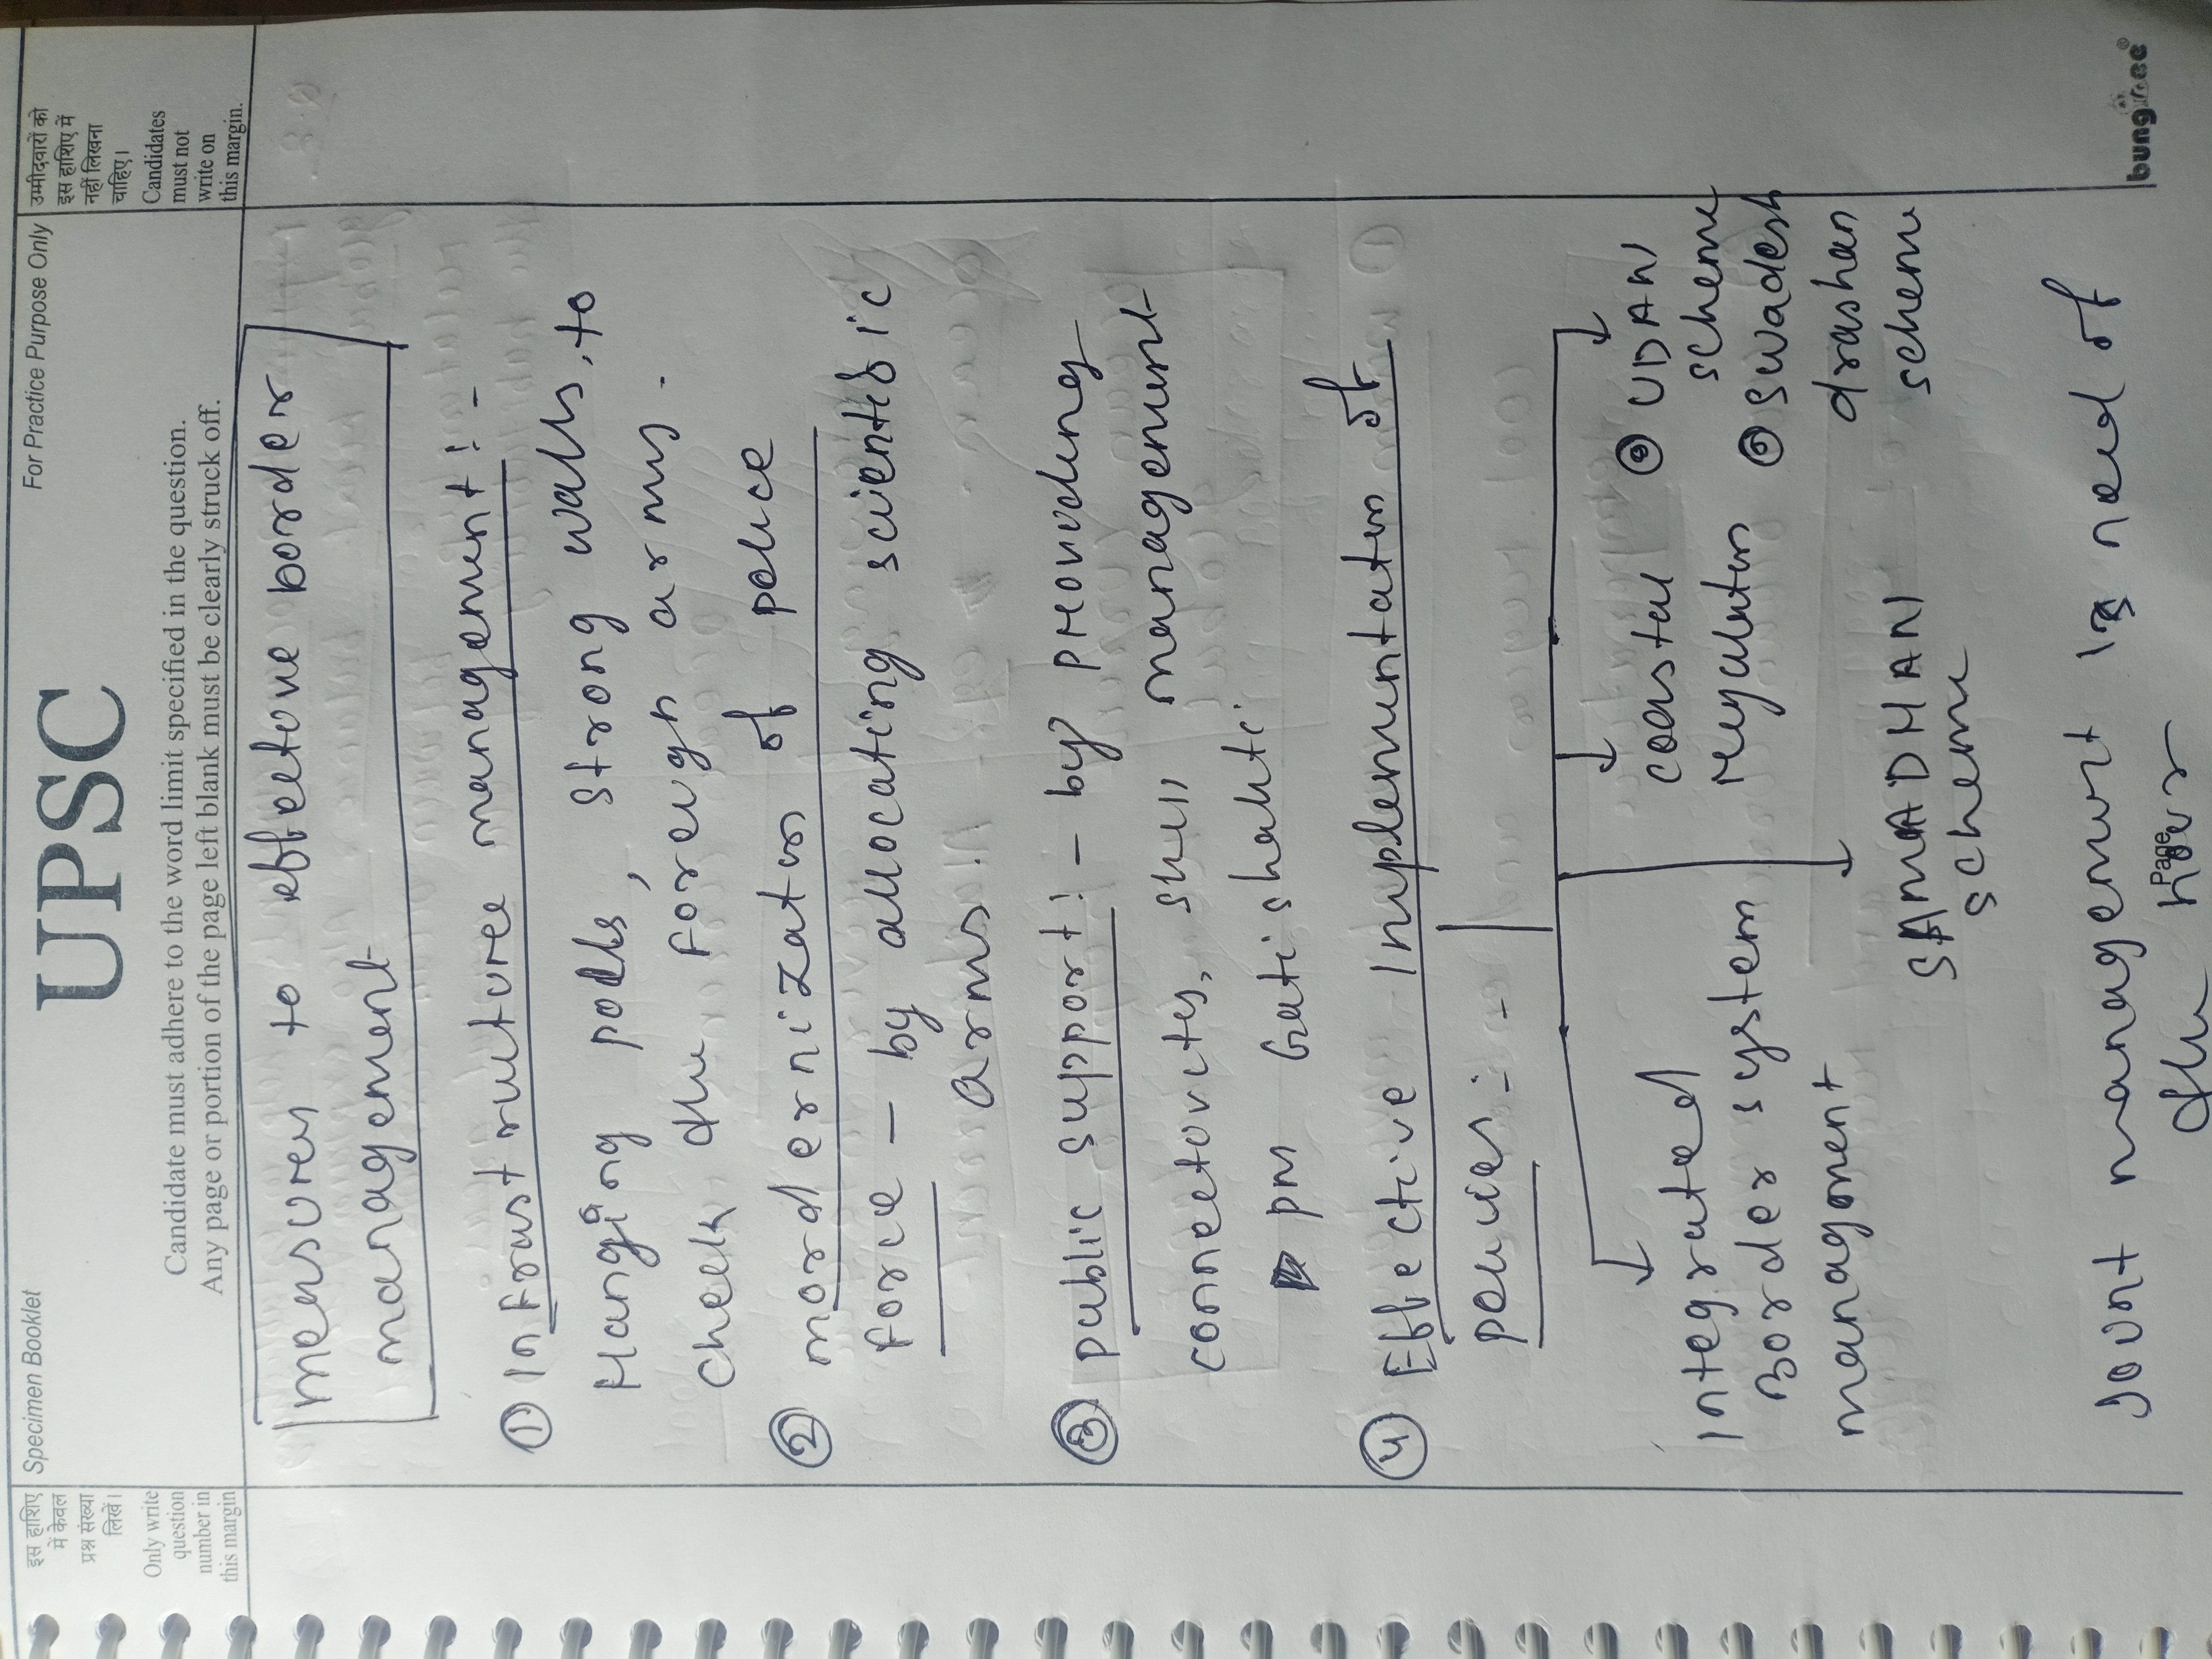 इस हाशिए
में केवल
प्रश्न संख्या
लिखें।
Only write
question
number in
this margin
Specimen Booklet
For Practice Purpose Only
UPSC
Candidate must adhere to the word limit specified in the question.
Any page or portion of the page left blank must be clearly struck off.
उम्मीदवारों को
इस हाशिए में
नहीं लिखना
चाहिए।
Candidates
must not
write on
this margin.
measures to effective border
management
① Infrastructure management :-
Hanging polls, strong walls, to
check the foreign arms.
② modernization of police
force - by allocating scientific
arms
③ public support :- by providing
connectivity, skill management
pm Gati shakti
④ Effective Implementation of
policies :-
Integrated
Border system
management
SAMADHAN
scheme
coastal
regulation
⊙ UDAN
scheme
⊙ swadesh
drashan
scheme
Joint management is need of
the hour
Page
bungree®